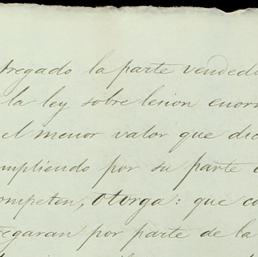 tregado la parte vendedo
la ley sobre lesion enorm
el menor valor que di
mpliendo por su parte
ompeten, otorga: que co
egaran por parte de la